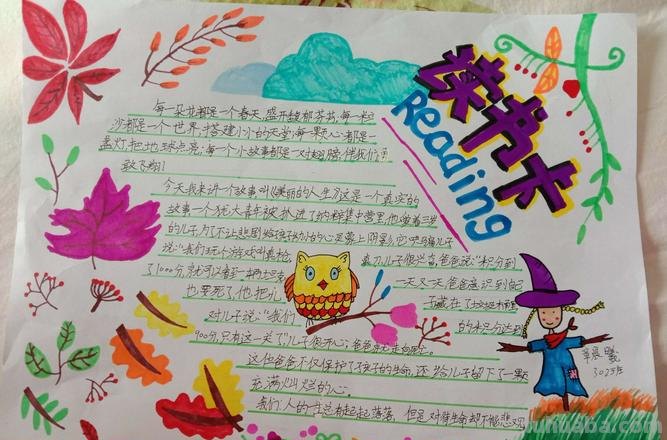 读书卡
Reading
每一朵花都是一个春天,盛开馥郁芬芳;每一粒
沙都是一个世界,搭建小小的天堂;每一颗心都是一
盏灯,把地球点亮;每一个小故事都是一对翅膀,借我们
敢飞翔!
今天我来讲一个故事叫《美丽的人生》这是一个真实的
故事一个犹太青年被抓进了纳粹集中营里,他带着三岁
的儿子,为了不让悲剧给孩子幼小的心灵蒙上阴影,它哄骗儿子
说:“我们玩个游戏叫
儿子很兴奋,爸爸说:“积分到
了1000分,就可以拿到一辆
一天又一天爸爸意识到自己
也要死了他把儿
子藏在了垃圾桶里
对儿子说:“我们
的来只分达到
900分,只有这一关了儿子很开心,爸爸
这位爸爸不仅保护了孩子的生命,还给儿子留下了一颗
充满灿烂的心。
我们人的
起起落落,但是对待生命却不能悲观
302班